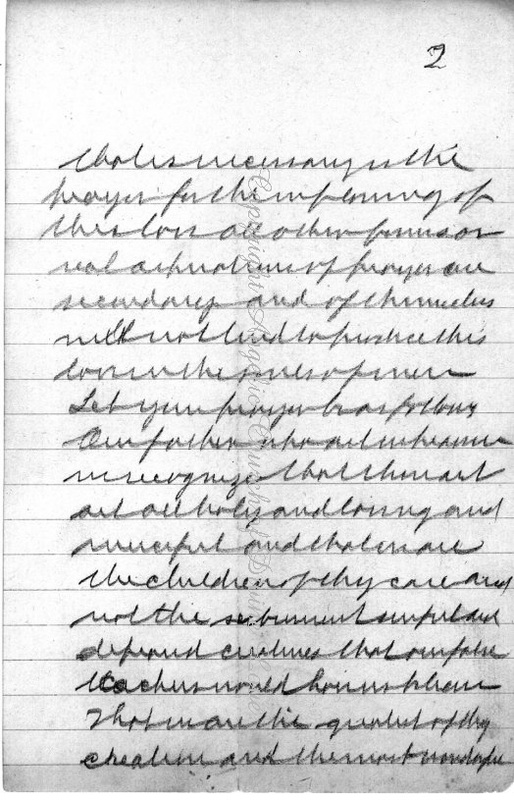 2
that is necessary is the
prayer for the inflowing of
this love all other forms or
real aspirations of prayer are
secondary and of themselves
will not tend to produce this
love in the souls of men
Let your prayer be as follows
Our father who art in heaven
we recognize that thou art
art all holy and loving and
merciful and that we are
the children of thy care and
not the subservient sinful and
depraved creatures that our false
teachers would have us believe
That we are the greatest of thy
creation and the most wonderful
Copyright Angelic